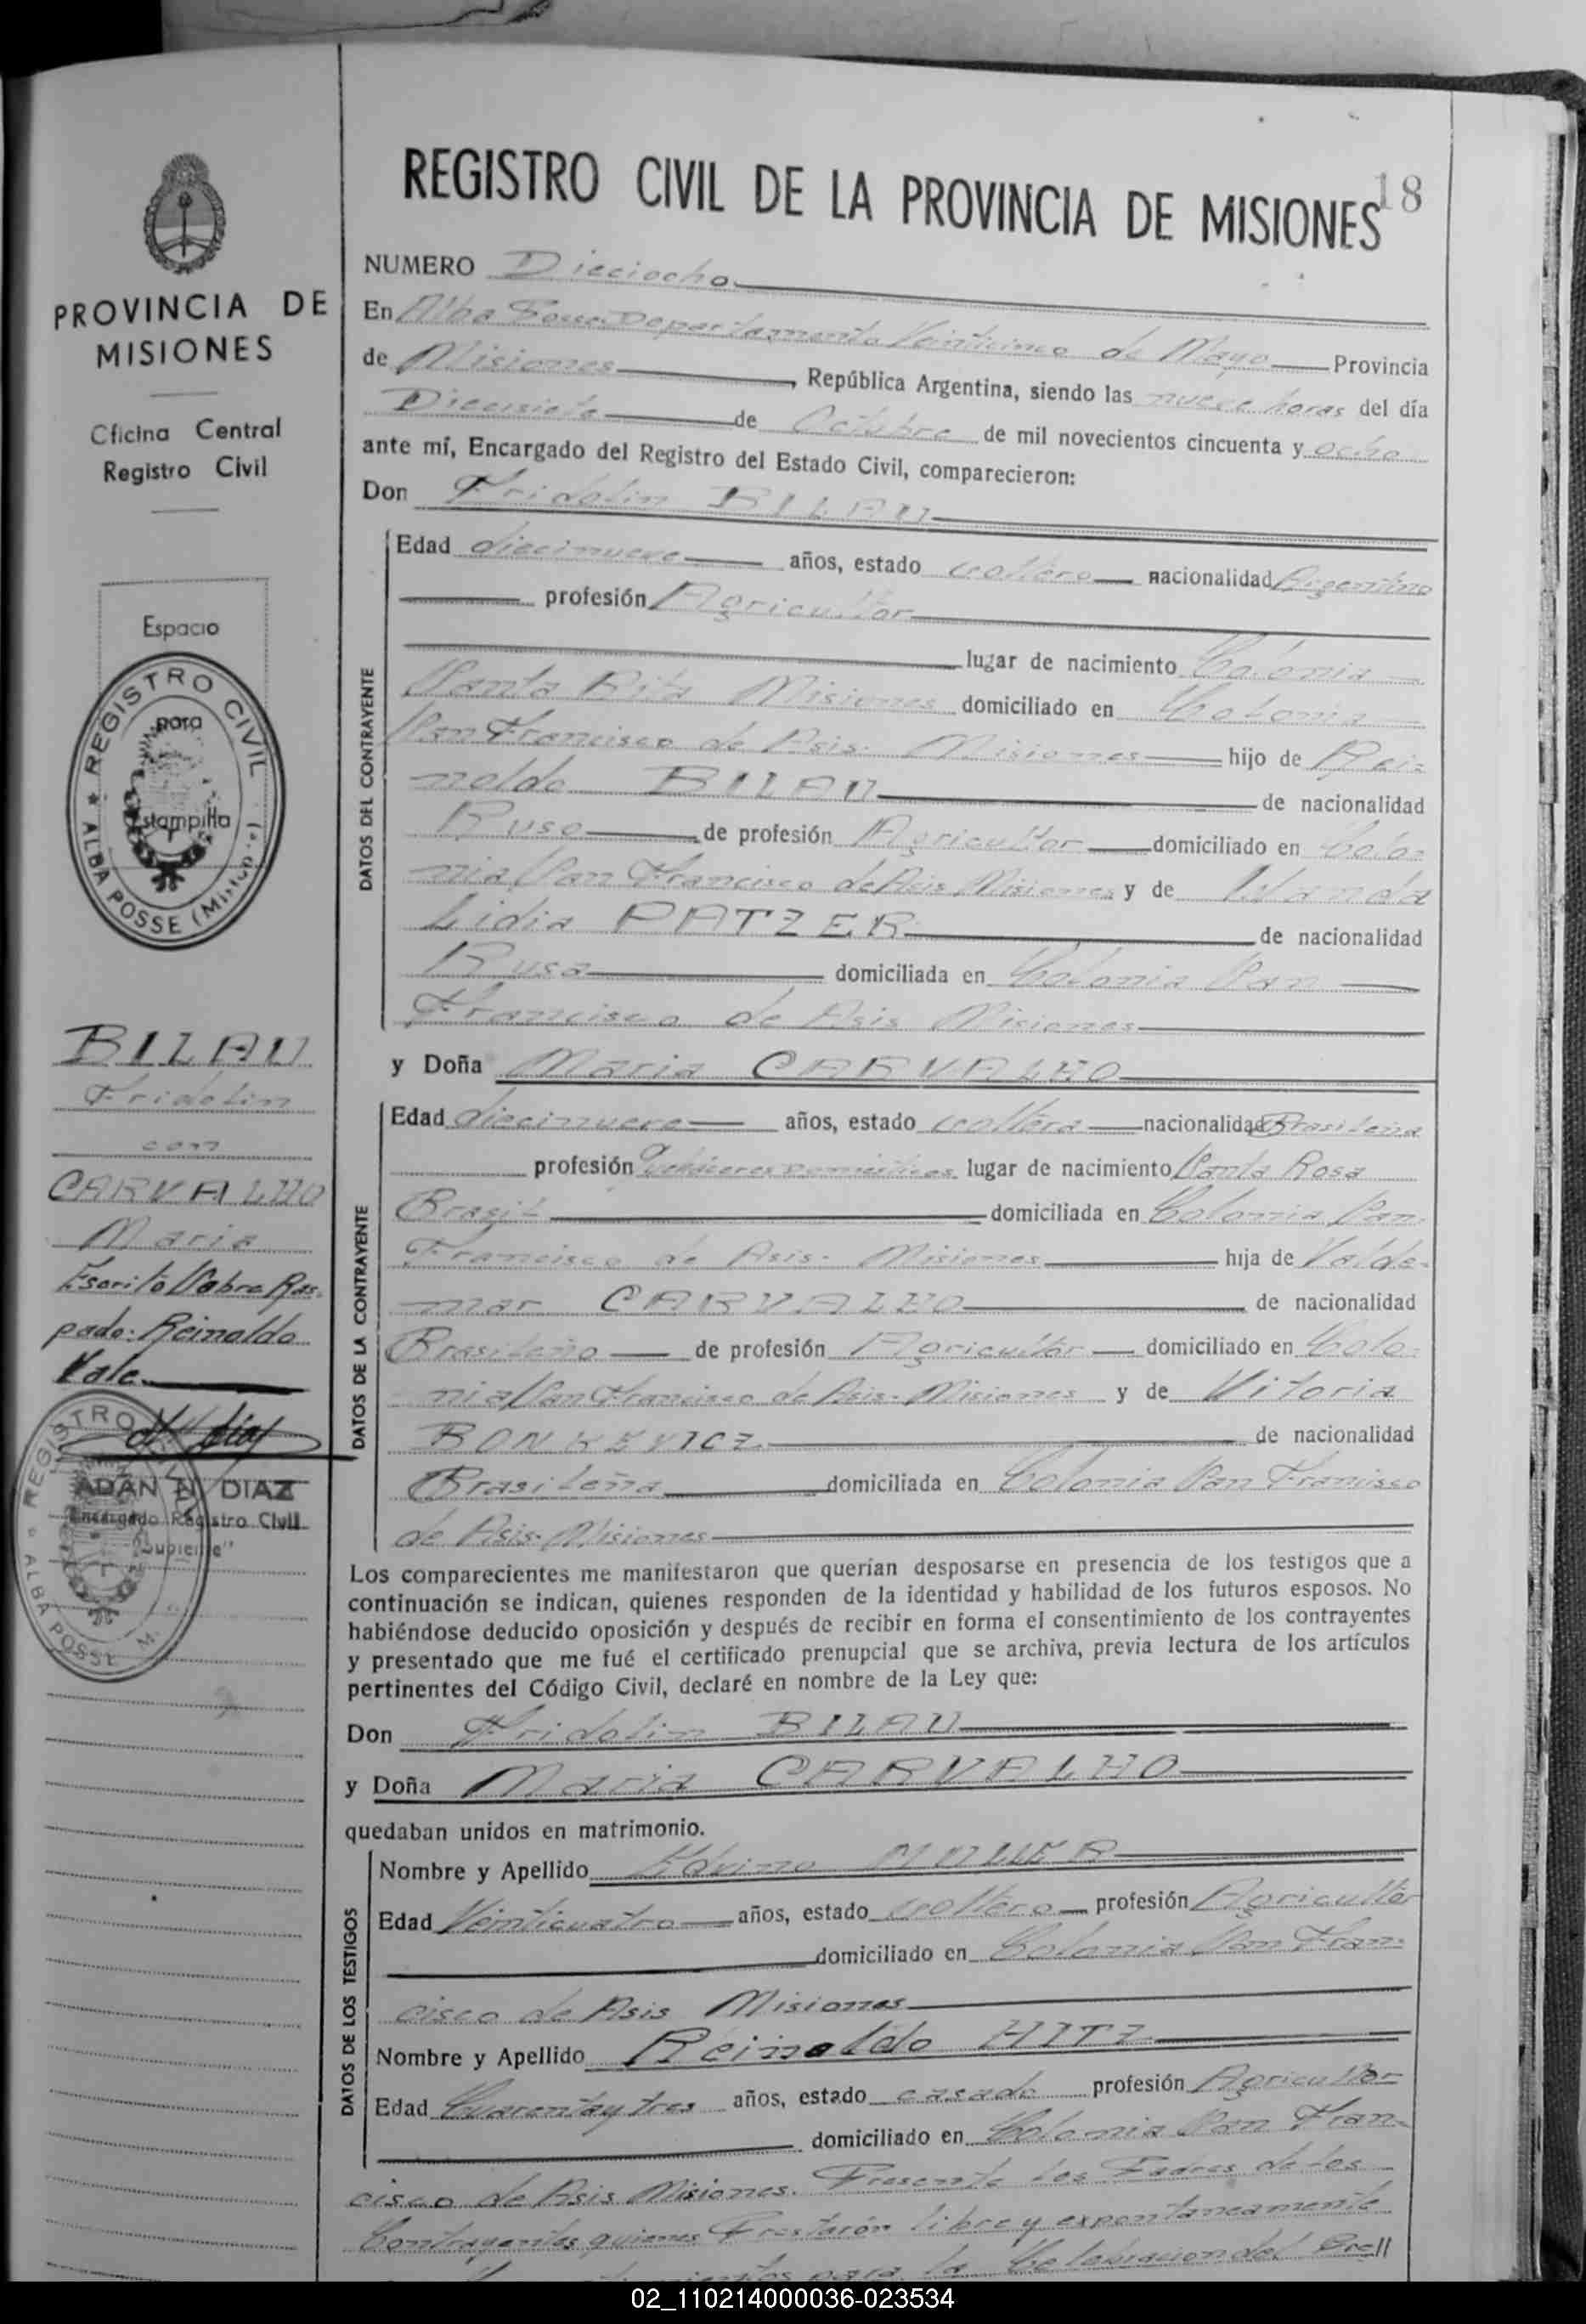 18
REGISTRO CIVIL DE LA PROVINCIA DE MISIONES
PROVINCIA DE
MISIONES
Oficina Central
Registro Civil
Espacio
para
estampilla
REGISTRO CIVIL
ALBA POSSE
BILAU
Fridolin
con
CARVALHO
Maria
Escrito Sobre Ras-
pado: Reinaldo
Vale
REGISTRO
ALBA POSSE M.
ADAN N. DIAZ
Encargado Registro Civil
"Suplente"
NUMERO Dieciocho
En Alba Posse Departamento Veinticinco de Mayo Provincia
de Misiones, República Argentina, siendo las nueve horas del día
Diecisiete de Octubre de mil novecientos cincuenta y ocho
ante mí, Encargado del Registro del Estado Civil, comparecieron:
Don Fridolin BILAU
DATOS DEL CONTRAYENTE
Edad diecinueve años, estado soltero nacionalidad Argentino
profesión Agricultor
lugar de nacimiento Colonia
Santa Rita Misiones domiciliado en Colonia
San Francisco de Asis- Misiones hijo de Rei-
noldo BILAU de nacionalidad
Ruso de profesión Agricultor domiciliado en Colo-
nia San Francisco de Asis Misiones y de Wanda
Lidia PATZER de nacionalidad
Rusa domiciliada en Colonia San
Francisco de Asis Misiones
y Doña Maria CARVALHO
DATOS DE LA CONTRAYENTE
Edad diecinueve años, estado soltera nacionalidad Brasileña
profesión Quehaceres domesticos lugar de nacimiento Santa Rosa
Brasil domiciliada en Colonia San
Francisco de Asis- Misiones hija de Valde-
mar CARVALHO de nacionalidad
Brasileño de profesión Agricultor domiciliado en Colo-
nia San Francisco de Asis- Misiones y de Vitoria
BONKEVICZ de nacionalidad
Brasileña domiciliada en Colonia San Francisco
de Asis- Misiones
Los comparecientes me manifestaron que querían desposarse en presencia de los testigos que a
continuación se indican, quienes responden de la identidad y habilidad de los futuros esposos. No
habiéndose deducido oposición y después de recibir en forma el consentimiento de los contrayentes
y presentado que me fué el certificado prenupcial que se archiva, previa lectura de los artículos
pertinentes del Código Civil, declaré en nombre de la Ley que:
Don Fridolin BILAU
y Doña Maria CARVALHO
quedaban unidos en matrimonio.
DATOS DE LOS TESTIGOS
Nombre y Apellido Edvino MULLER
Edad Veinticuatro años, estado soltero profesión Agricultor
domiciliado en Colonia San Fran-
cisco de Asis Misiones
Nombre y Apellido Reinaldo HITZ
Edad Cuarenta y tres años, estado casado profesión Agricultor
domiciliado en Colonia San Fran-
cisco de Asis Misiones. Presente los Padres de los
Contrayentes quienes Prestarón libre y expontaneamente
para la Celebracion del
02_110214000036-023534